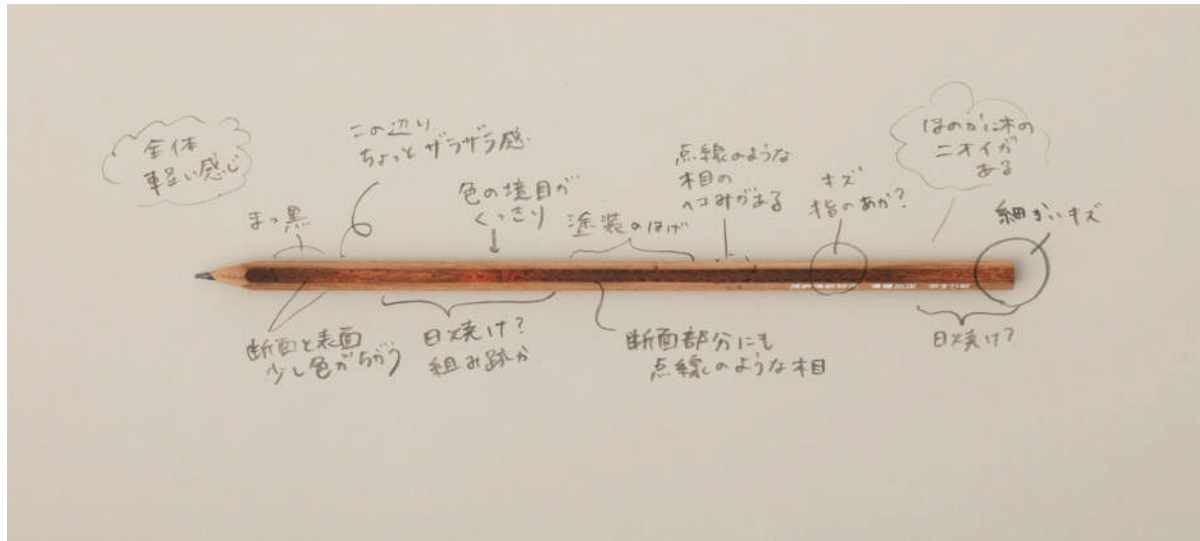 全体
軽い感じ
この辺り
ちょっとザラザラ感
まっ黒
色の境目が
くっきり
塗装のはげ
点線のような
木目の
ヘコみがある
キズ
指のあか?
ほのかに木の
ニオイが
ある
細かいキズ
断面と表面
少し色がちがう
日焼け?
組み跡か
断面部分にも
点線のような木目
日焼け?